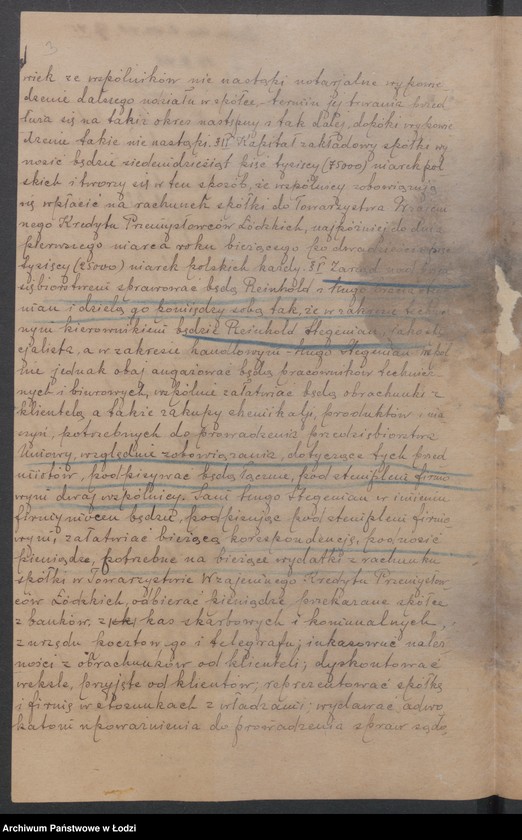 3
wiek ze wspólników nie nastąpi notarjalne wypowie-
dzenie dalszego udziału w spółce, termin jej trwania przed-
łuża się na takiż okres następny i tak dalej, dopóki wypowie-
dzenie takie nie nastąpi. § Kapitał zakładowy spółki wy-
nosić będzie siedemdziesiąt pięć tysięcy (75000) marek pol-
skich i tworzy się w ten sposób, że wspólnicy zobowiązują
się wpłacić na rachunek spółki do Towarzystwa Wzajem-
nego Kredytu Przemysłowców Łódzkich, najpóźniej do dnia
pierwszego marca roku bieżącego po dwadzieścia pięć
tysięcy (25000) marek polskich każdy. § Zarząd nad przed-
siębiorstwem sprawować będą Reinhold i Hugo bracia Stege-
man i dzielą go pomiędzy sobą tak, że w zakresie technicz-
nym kierownikiem będzie Reinhold Stegeman, jako spe-
cjalista, a w zakresie handlowym - Hugo Stegeman, wspól-
nie jednak obaj angażować będą pracowników technicz-
nych i biurowych, wspólnie załatwiać będą obrachunki z
klientelą a także zakupy chemikalji, produktów i ma-
szyn, potrzebnych do prowadzenia przedsiębiorstwa
Umowy, względnie zobowiązania, dotyczące tych przed-
miotów, podpisywać będą łącznie, pod stemplem firmo-
wym dwaj wspólnicy. Sam Hugo Stegeman w imieniu
firmy mocen będzie, podpisując pod stemplem firmo-
wym, załatwiać bieżącą korespondencję, podnosić
pieniądze, potrzebne na bieżące wydatki z rachunku
spółki w Towarzystwie Wzajemnego Kredytu Przemysłow-
ców Łódzkich, odbierać pieniądze przekazane spółce
z banków, z kas skarbowych i komunalnych,
z urzędu pocztowego i telegrafu; inkasować należ-
ności z obrachunków od klienteli; dyskontować
weksle, przyjęte od klientów; reprezentować spółkę
i firmę w stosunkach z władzami; wydawać adwo-
katom upoważnienia do prowadzenia spraw sądo-
Archiwum Państwowe w Łodzi